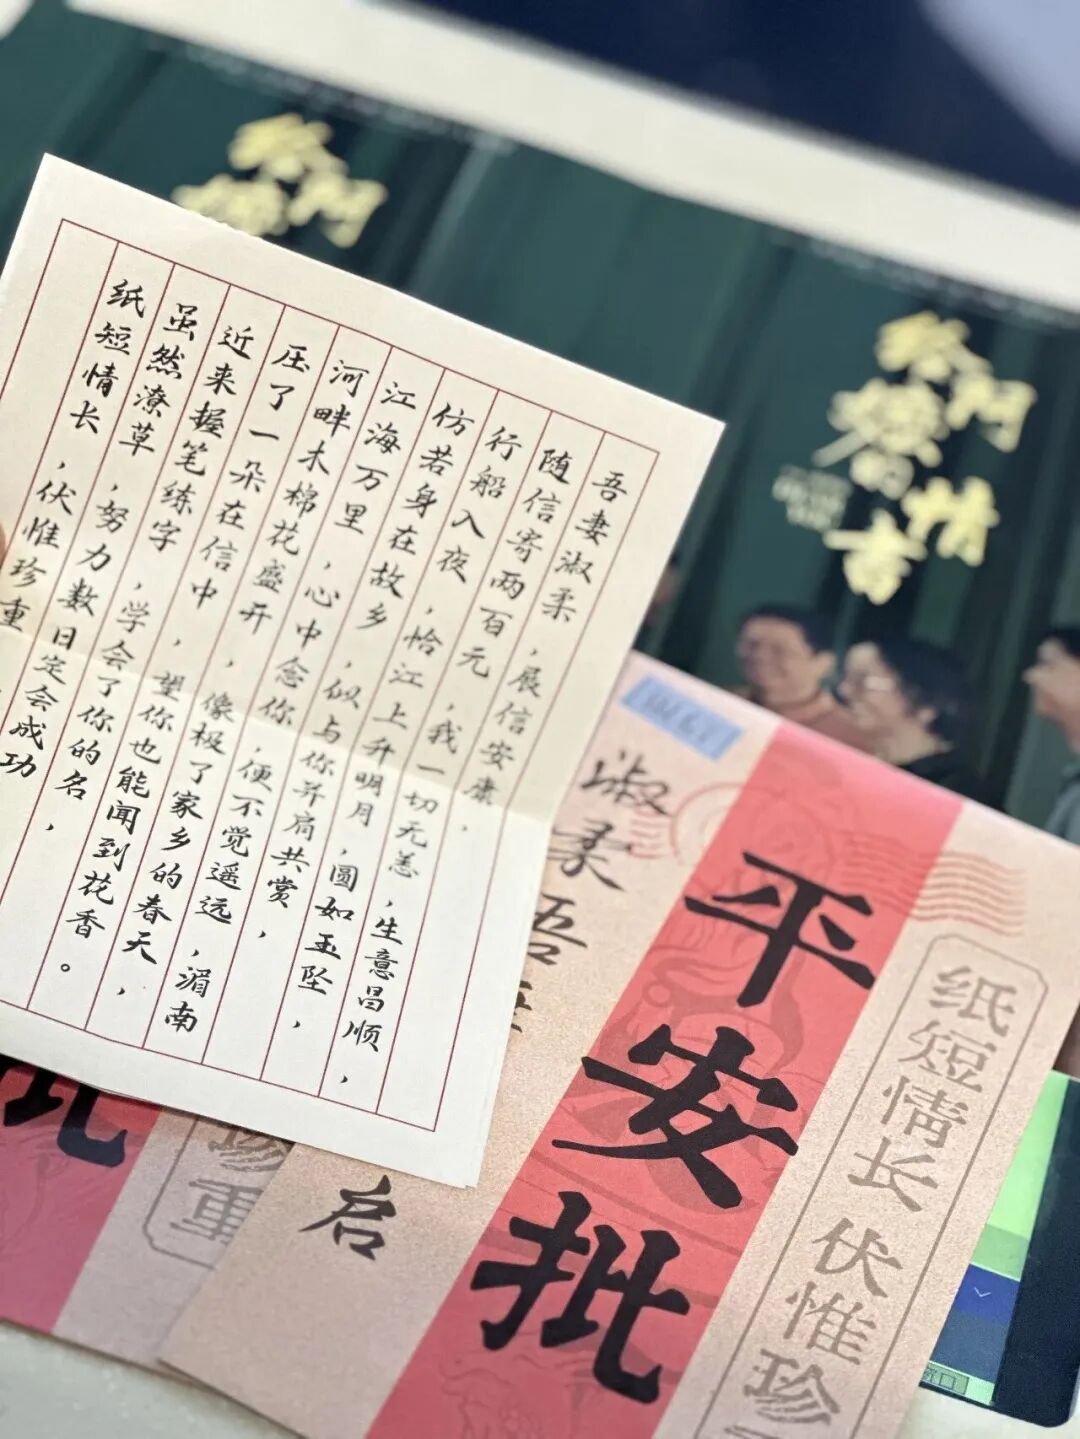 吾妻淑柔，展信安康.
随信寄两百元，我一切无恙，生意昌顺，
行船入夜，恰江上升明月，圆如玉坠，
仿若身在故乡，似与你并肩共赏，
江海万里，心中念你，便不觉遥远，湄南
河畔木棉花盛开，像极了家乡的春天，
压了一朵在信中，望你也能闻到花香。
近来握笔练字，学会了你的名，
虽然潦草，努力数日定会成功
纸短情长，伏惟珍重
给阿嬷的情书
纸短情长 伏惟珍
平安批
淑柔吾
启
珍重
批